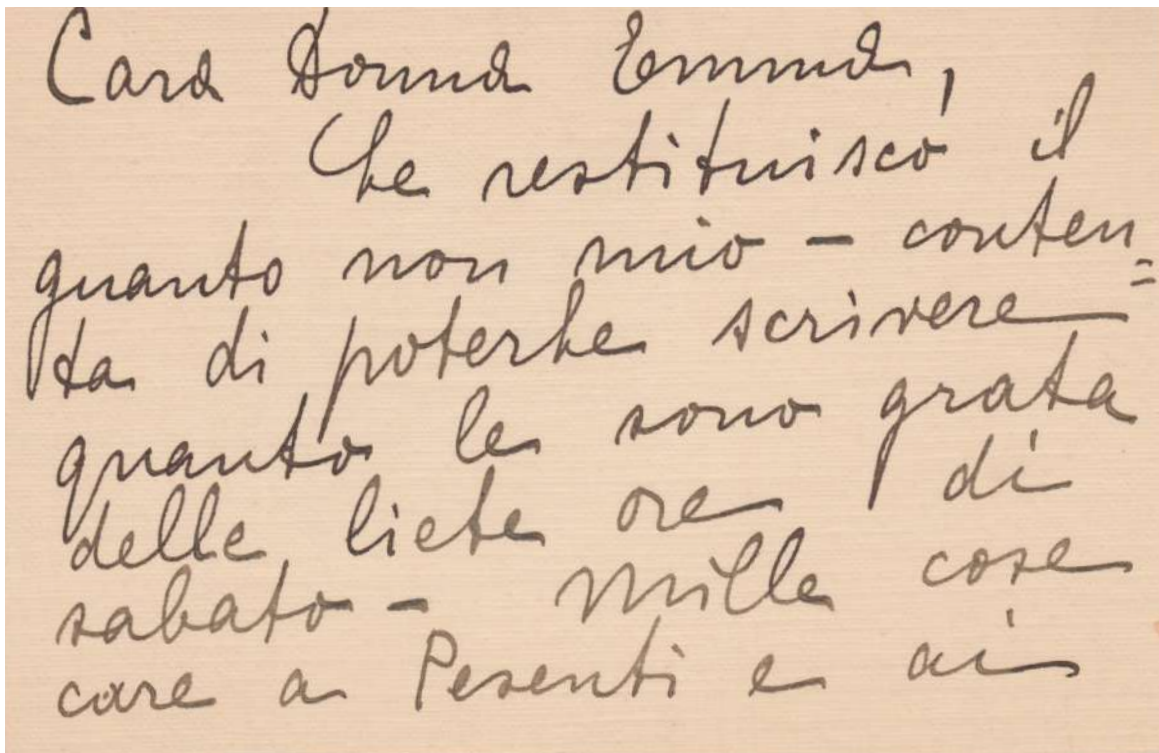 Cara Donna Emma,
Le restituisco il
guanto non mio – conten=
ta di poterLe scrivere
quanto le sono grata
delle liete ore di
sabato – Mille cose
care a Pesenti e ai